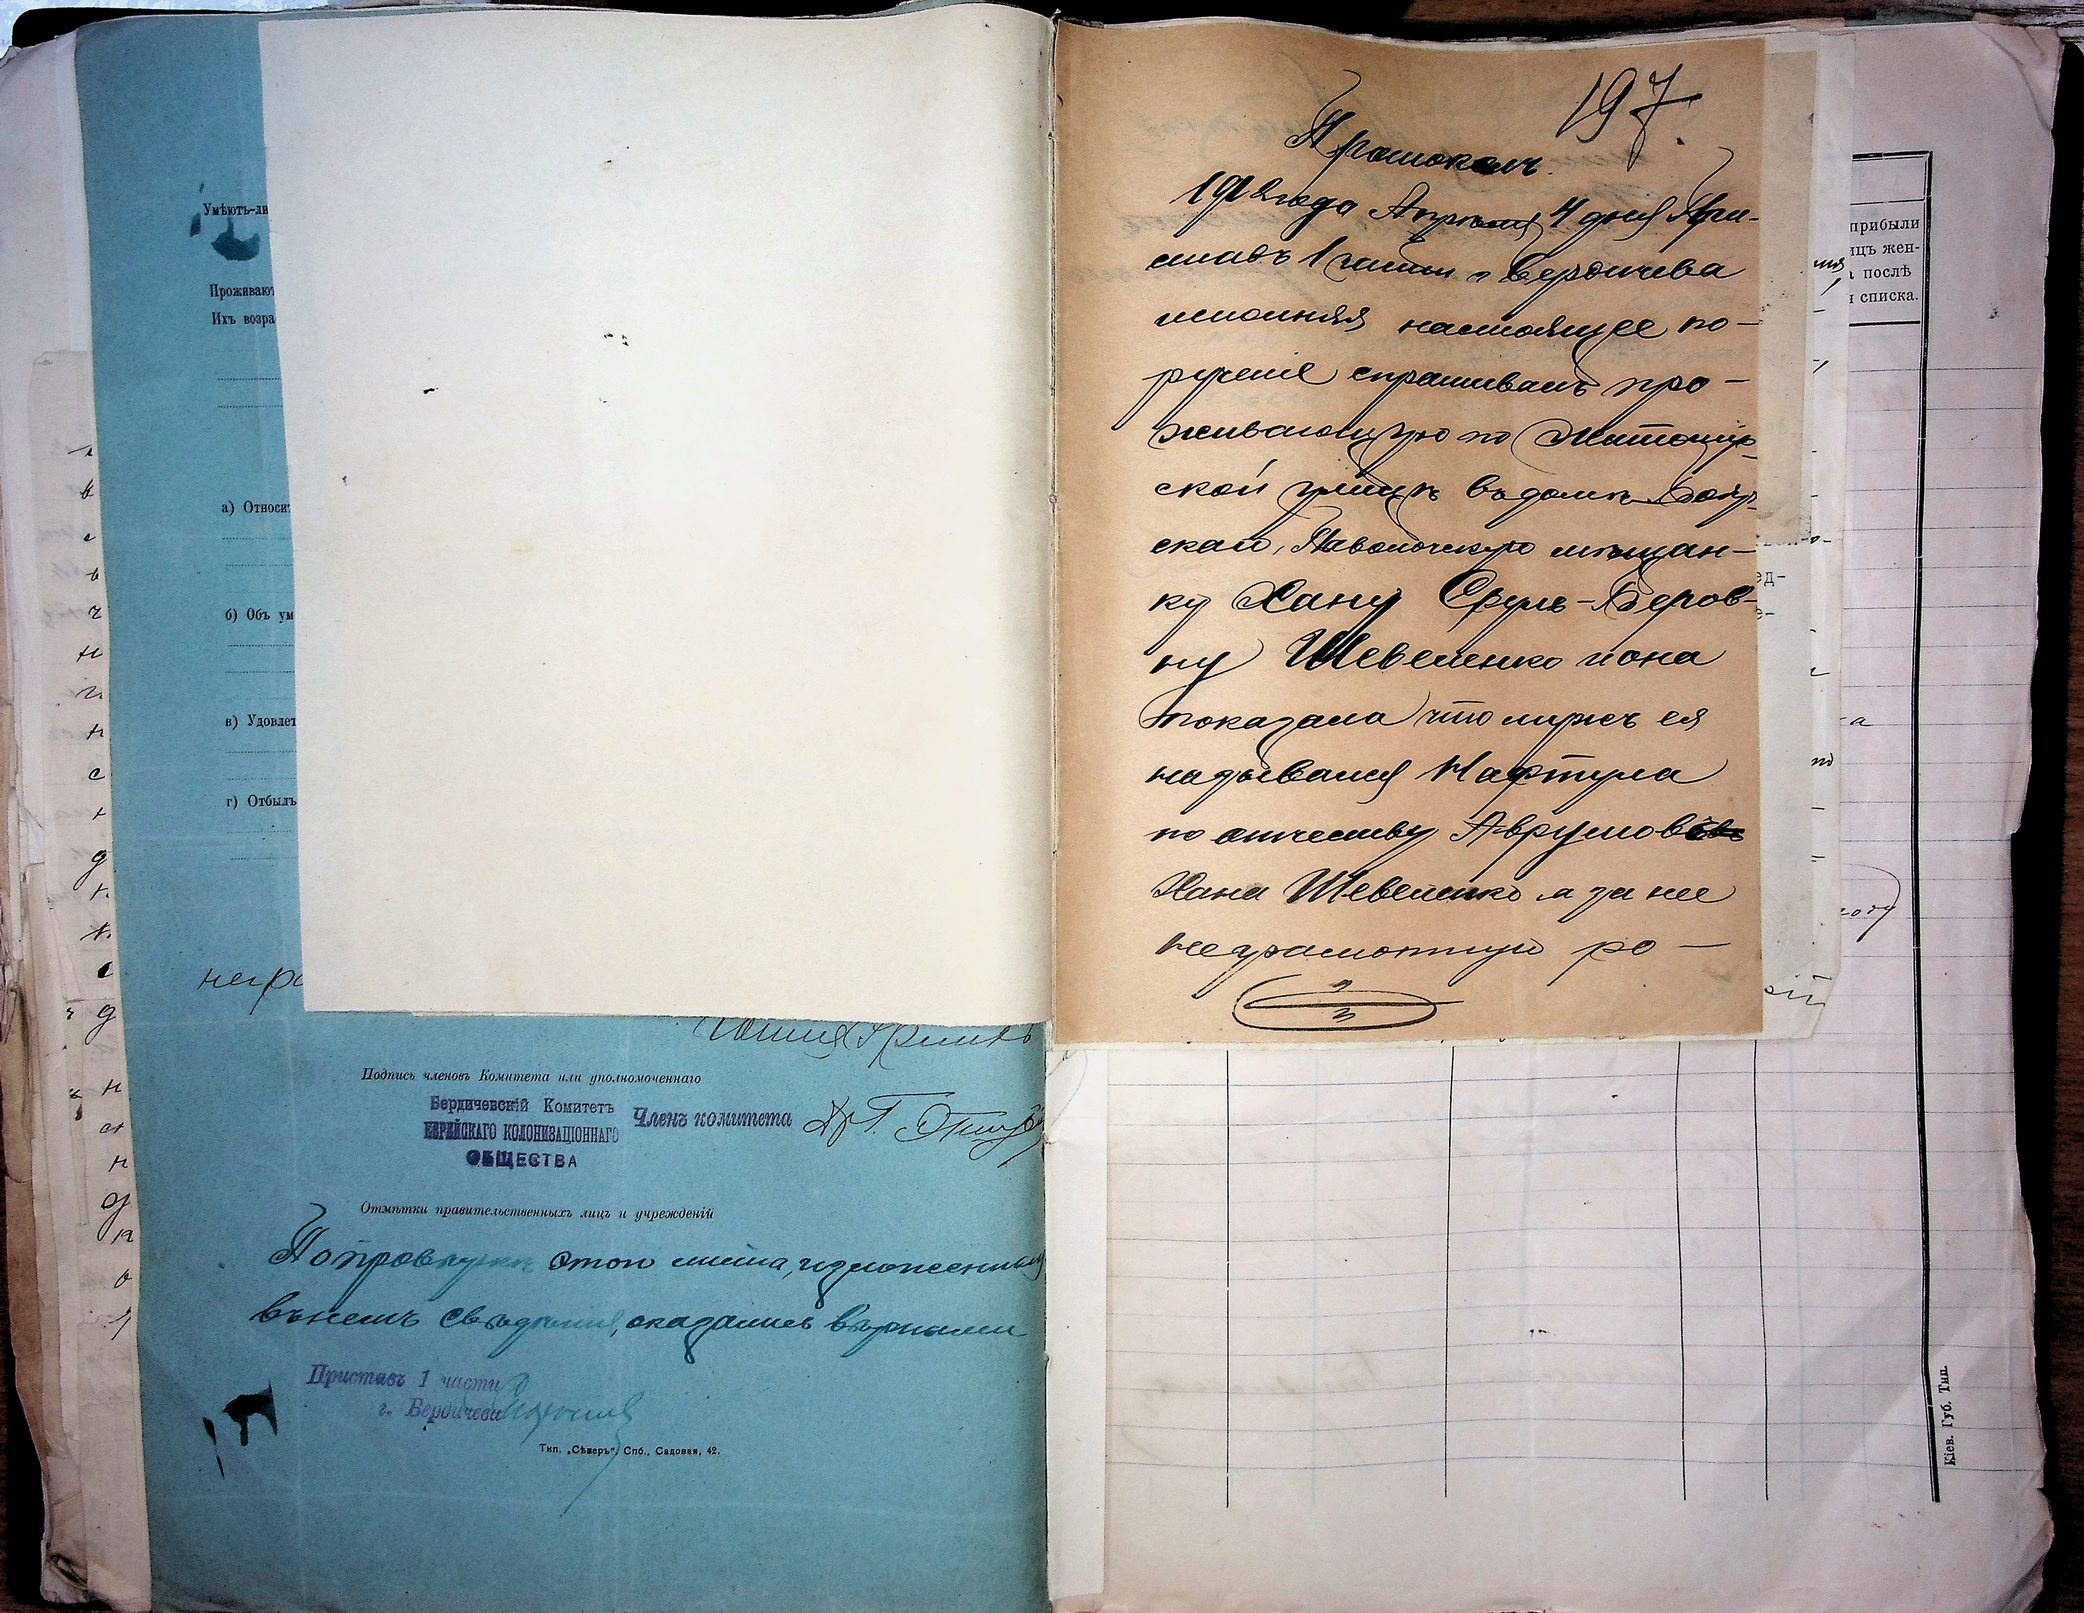 Умѣютъ-ли
Проживают
Ихъ возра
а) Относит
б) Объ ум
в) Удовлет
г) Отбылъ
негра
Подпись членовъ Комитета или уполномоченнаго
Бердичевскій Комитетъ
ЕВРЕЙСКАГО КОЛОНИЗАЦІОННАГО
ОБЩЕСТВА
Членъ комитета
Отмѣтки правительственныхъ лицъ и учрежденій
По провѣркѣ этого листа, изложенныя
въ немъ свѣдѣнія, оказались вѣрными
Приставъ 1 части
г. Бердичева
Тип. „Сѣверъ“, Спб., Садовая, 42.
197
Протоколъ
1912 года Апрѣля 4 дня При-
ставъ 1 части г Бердичева
исполняя настоящее по-
рученіе спрашивалъ про-
живающую по Житомір-
ской улицѣ въ домѣ
ской, Паволочскую мѣщан-
ку Хану Сруль-Беров-
ну Шевеленко и она
показала что мужъ ея
назывался Нафтула
по отчеству Аврумов
Хана Шевеленко а за нее
неграмотную ро-
прибыли
ицъ жен-
а послѣ
и списка.
Кіев. Губ. Тип.